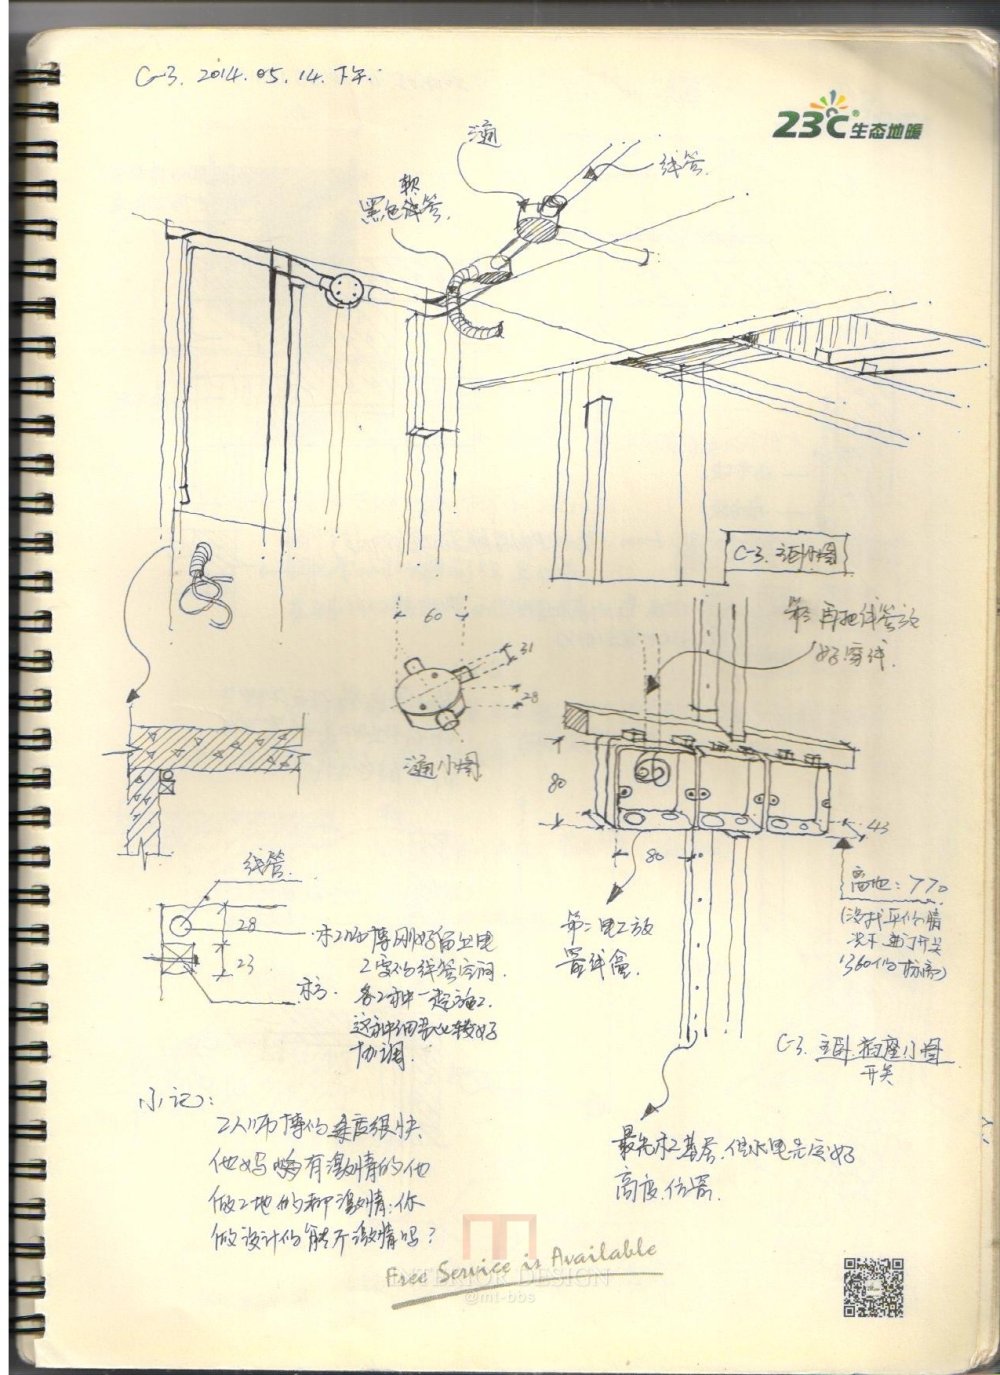 C-3. 2014.05.14.下午.
23℃®生态地暖
三通
线管.
软
黑色线管.
C-3. 主卧小图
第三 再把线管议
好穿线.
60
31
28
三通小图
80
80
43
离地：770
(没找平的情
况下
1360的标高)
线管.
28
23
木方.
木工师傅刚好留出电
工要的线管空间.
各工种一起施工.
这种细要比较好
协调.
第二 电工放
置线盒.
C-3. 主卧. 插座小图
开关
小记：
工人师傅的速度很快
有激情的他
做工地的那激情.你
做设计的能不激情吗？
最先木工基层.供水电先定好
高度.位置.
Free Service is Available
INTERIOR DESIGN
@mt-bbs